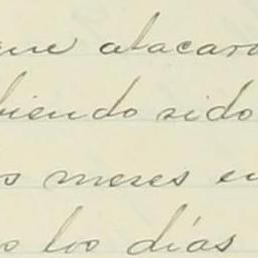 que atacar
biendo sido
s meses en
o los días